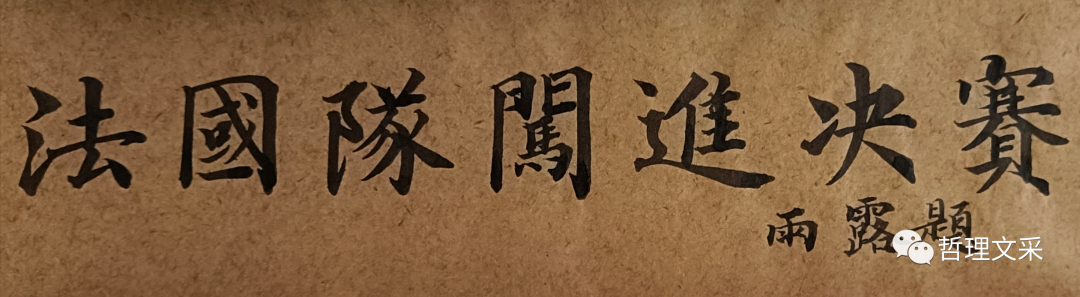 法國隊闖進决賽
雨露題
哲理文采